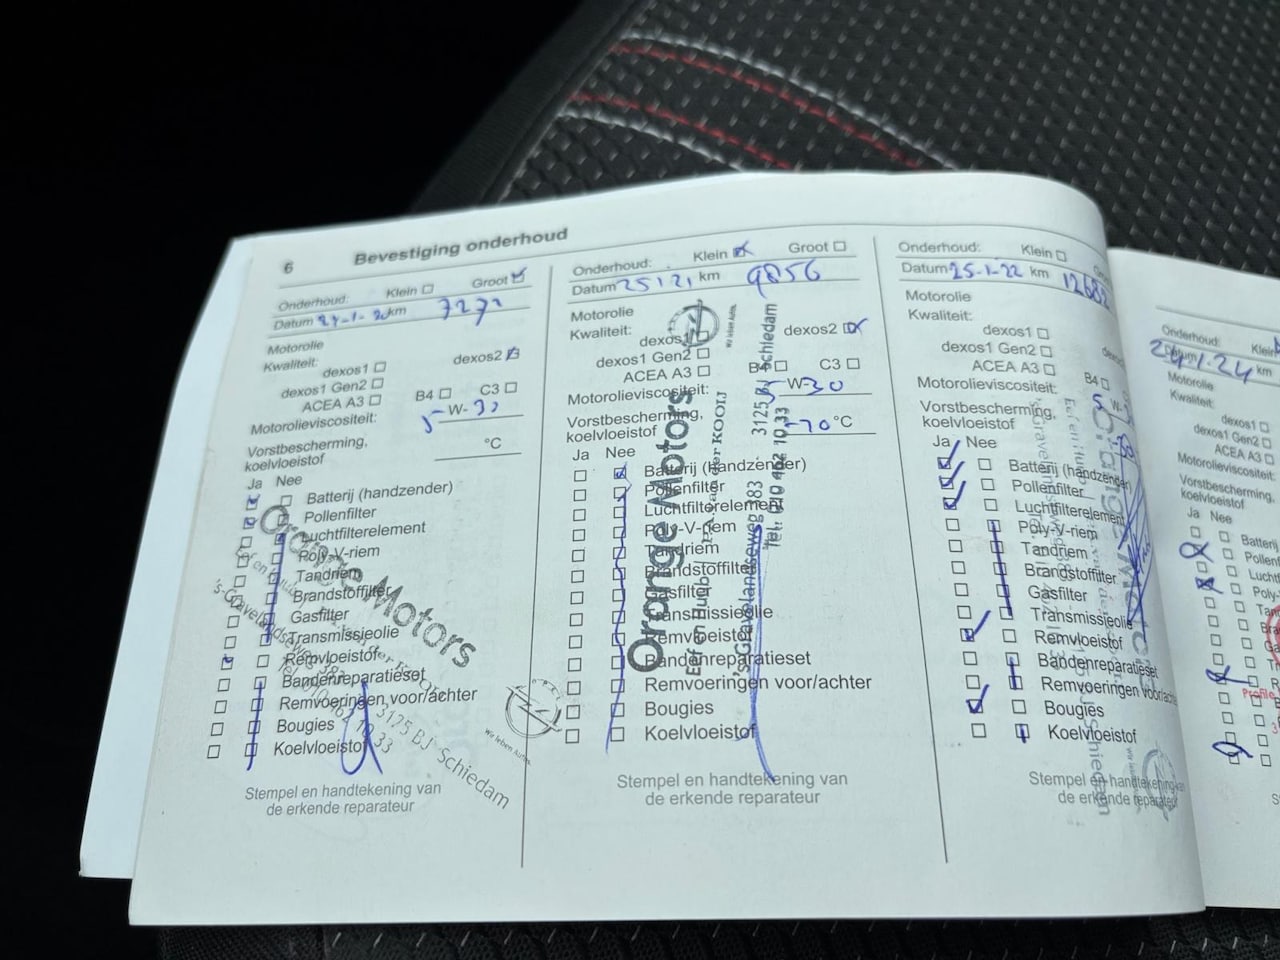 6 Bevestiging onderhoud
Onderhoud: Klein Groot
Datum km 7271
Motorolie
Kwaliteit:
dexos1 dexos2
dexos1 Gen2
ACEA A3 B4 C3
Motorolieviscositeit: 5 W-30
Vorstbescherming,
koelvloeistof °C
Ja Nee
Batterij (handzender)
Pollenfilter
Luchtfilterelement
Poly-V-riem
Tandriem
Brandstoffilter
Gasfilter
Transmissieolie
Remvloeistof
Bandenreparatieset
Remvoeringen voor/achter
Bougies
Koelvloeistof
Orange Motors
3125 BJ Schiedam
Wir leben Autos.
Stempel en handtekening van
de erkende reparateur
Onderhoud: Klein Groot
Datum 25 1 21 km 9856
Motorolie
Kwaliteit:
dexos1 dexos2
dexos1 Gen2
ACEA A3 B4 C3
Motorolieviscositeit: 5 W-30
Vorstbescherming,
koelvloeistof -70 °C
Ja Nee
Batterij (handzender)
Pollenfilter
Luchtfilterelement
Poly-V-riem
Tandriem
Brandstoffilter
Gasfilter
Transmissieolie
Remvloeistof
Bandenreparatieset
Remvoeringen voor/achter
Bougies
Koelvloeistof
Orange Motors
Eef en Huub
's-Gravelandseweg 383 3125 BJ Schiedam
Tel. 010 462 10 33
Stempel en handtekening van
de erkende reparateur
Onderhoud: Klein
Datum 25-1-22 km
Motorolie
Kwaliteit:
dexos1
dexos1 Gen2
ACEA A3 B4
Motorolieviscositeit: 5 W-
Vorstbescherming,
koelvloeistof
Ja Nee
Batterij (handzender)
Pollenfilter
Luchtfilterelement
Poly-V-riem
Tandriem
Brandstoffilter
Gasfilter
Transmissieolie
Remvloeistof
Bandenreparatieset
Remvoeringen voor/achter
Bougies
Koelvloeistof
Stempel en handtekening van
de erkende reparateur
Onderhoud: Klein
Datum km
Motorolie
Kwaliteit:
dexos1
dexos1 Gen2
ACEA A3
Motorolieviscositeit:
Vorstbescherming,
koelvloeistof
Ja Nee